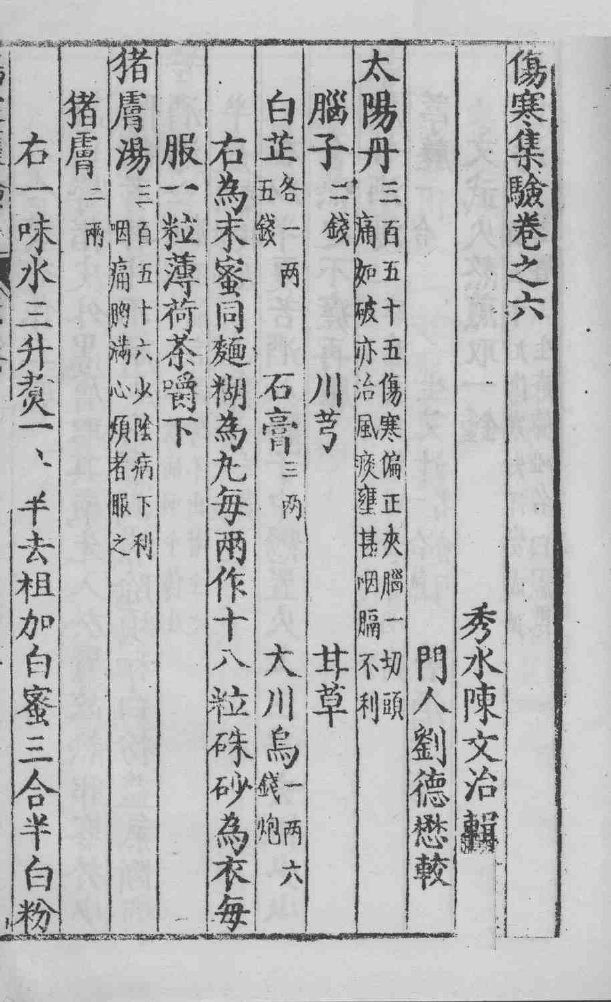 傷寒集驗卷之六
秀水陳文治輯
門人劉德懋較
太陽丹三百五十五傷寒偏正夾腦一切頭
痛如破亦治風痰壅甚咽膈不利
腦子二錢 川芎 甘草
白芷各一两五錢 石膏三两 大川烏一两六錢炮
右為末蜜同麵糊為丸每兩作十八粒硃砂為衣每
服一粒薄荷茶嚼下
猪膚湯三百五十六少陰病下利
咽痛胸满心煩者服之
猪膚二兩
右一味水三升煑一、半去柤加白蜜三合半白粉